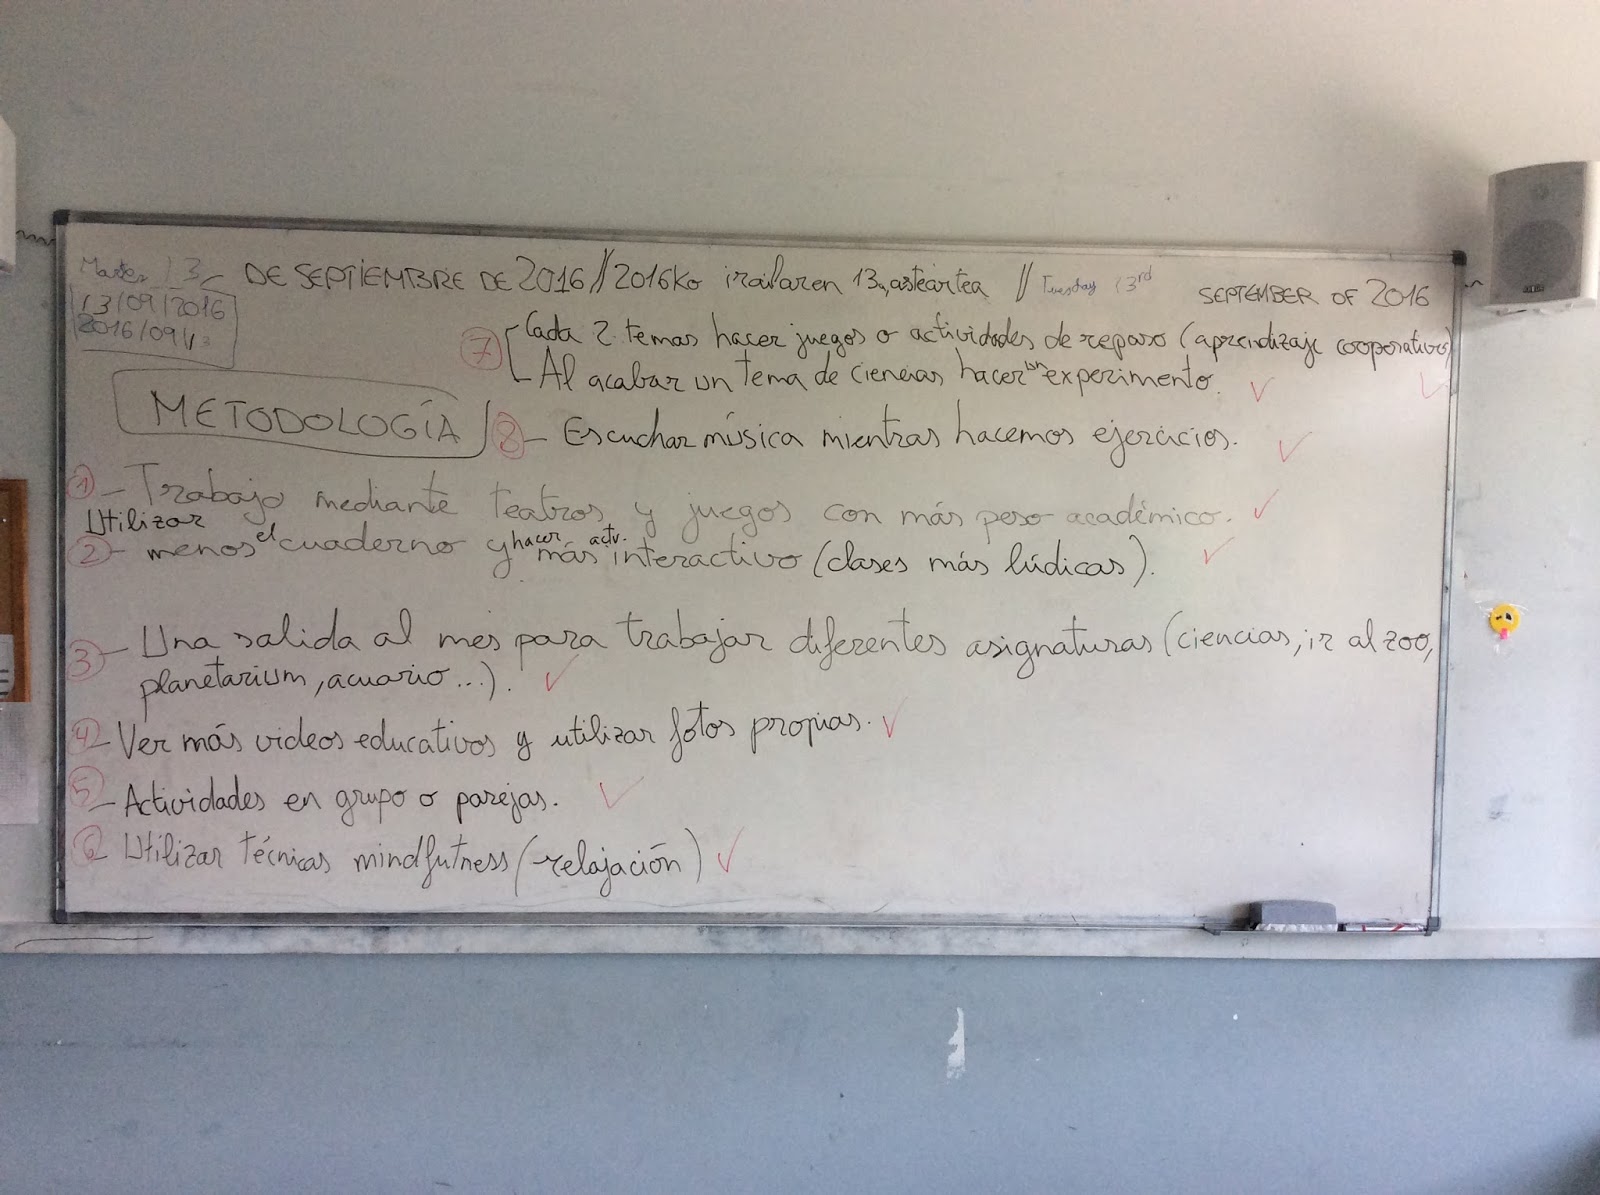 Martes 13 DE SEPTIEMBRE DE 2016 // 2016ko irailaren 13a, asteartea // Tuesday 13rd SEPTEMBER OF 2016
13/09/2016
2016/09/13
METODOLOGÍA
1- Trabajo mediante teatros y juegos con más peso académico.
2- Utilizar menos el cuaderno y hacer activ. más interactivo (clases más lúdicas).
3- Una salida al mes para trabajar diferentes asignaturas (ciencias, ir al zoo,
planetarium, acuario...).
4- Ver más videos educativos y utilizar fotos propias.
5- Actividades en grupo o parejas.
6- Utilizar técnicas mindfutness (relajación)
7 - Cada 2 temas hacer juegos o actividades de repaso (aprendizaje cooperativo)
- Al acabar un tema de ciencias hacer un experimento.
8- Escuchar música mientras hacemos ejercicios.